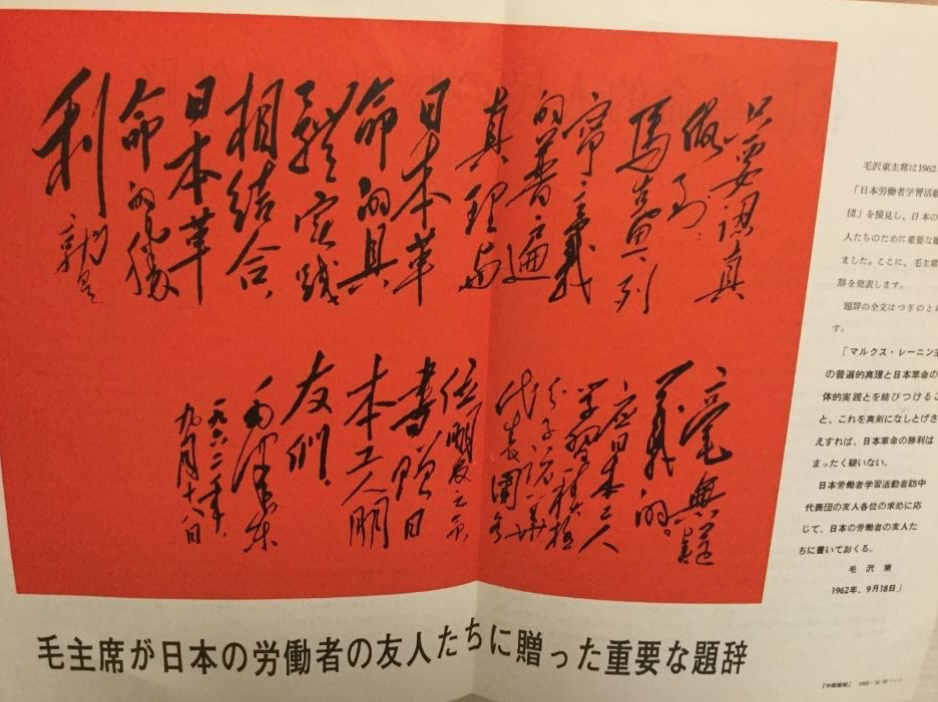 只要認真
做到
馬克思列
寧主義
的普遍
真理与
日本革
命的具
體实践
相結合,
日本革
命的勝
利就是
毫無疑
義的。
应日本工人
学習積極
分子访華
代表團各
位朋友之命
書贈日
本工人朋
友们。
毛澤东
一九六二年
九月十八日
毛沢東主席は1962
「日本労働者学習活動
団」を接見し、日本の
人たちのために重要な題
ました。ここに、毛主席
辞を発表します。
題辞の全文はつぎのとお
す。
「マルクス・レーニン主
の普遍的真理と日本革命の
体的実践とを結びつけるこ
と、これを真剣になしとげさ
えすれば、日本革命の勝利は
まったく疑いない。
日本労働者学習活動者訪中
代表団の友人各位の求めに応
じて、日本の労働者の友人た
ちに書いておくる。
毛 沢 東
1962年、9月18日」
毛主席が日本の労働者の友人たちに贈った重要な題辞